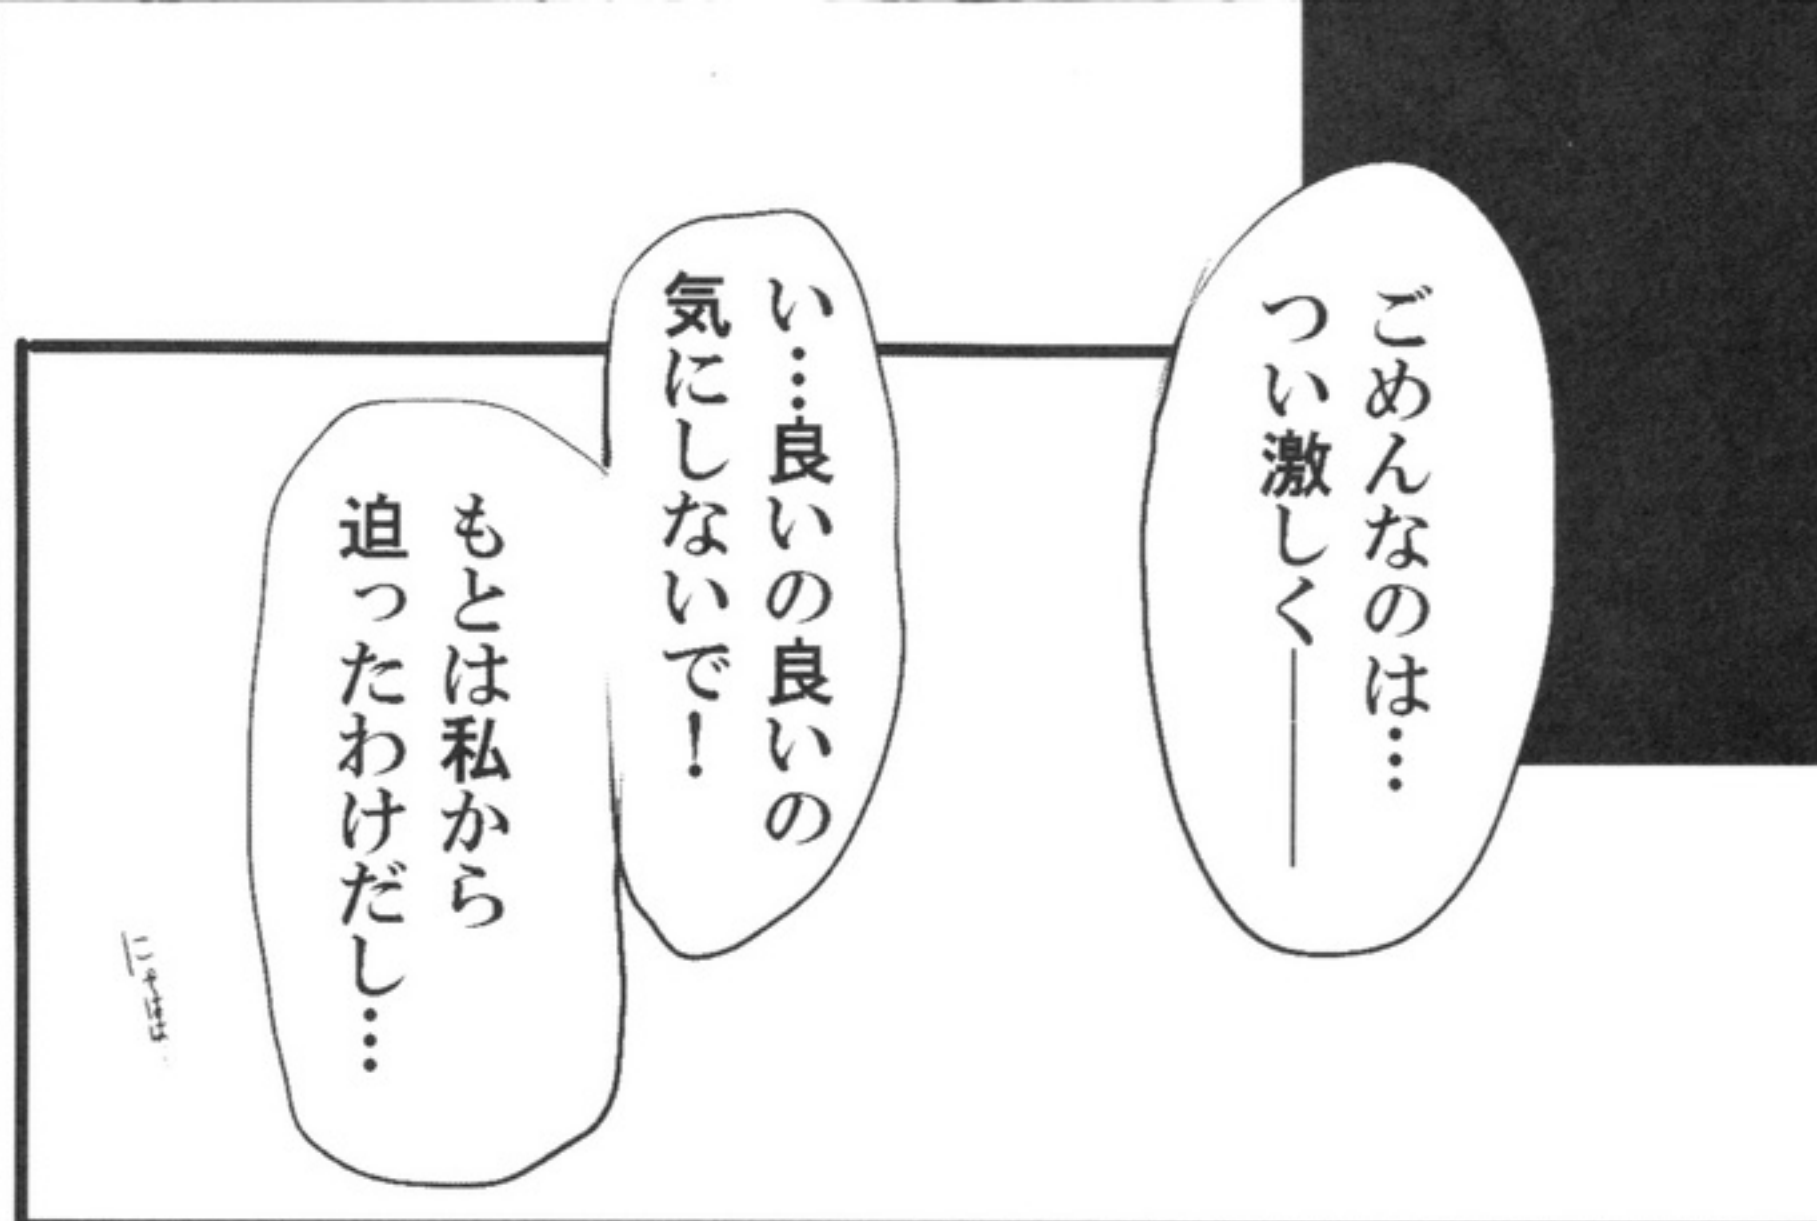 ごめんなのは…
つい激しく───
い…良いの良いの
気にしないで！
もとは私から
迫ったわけだし…